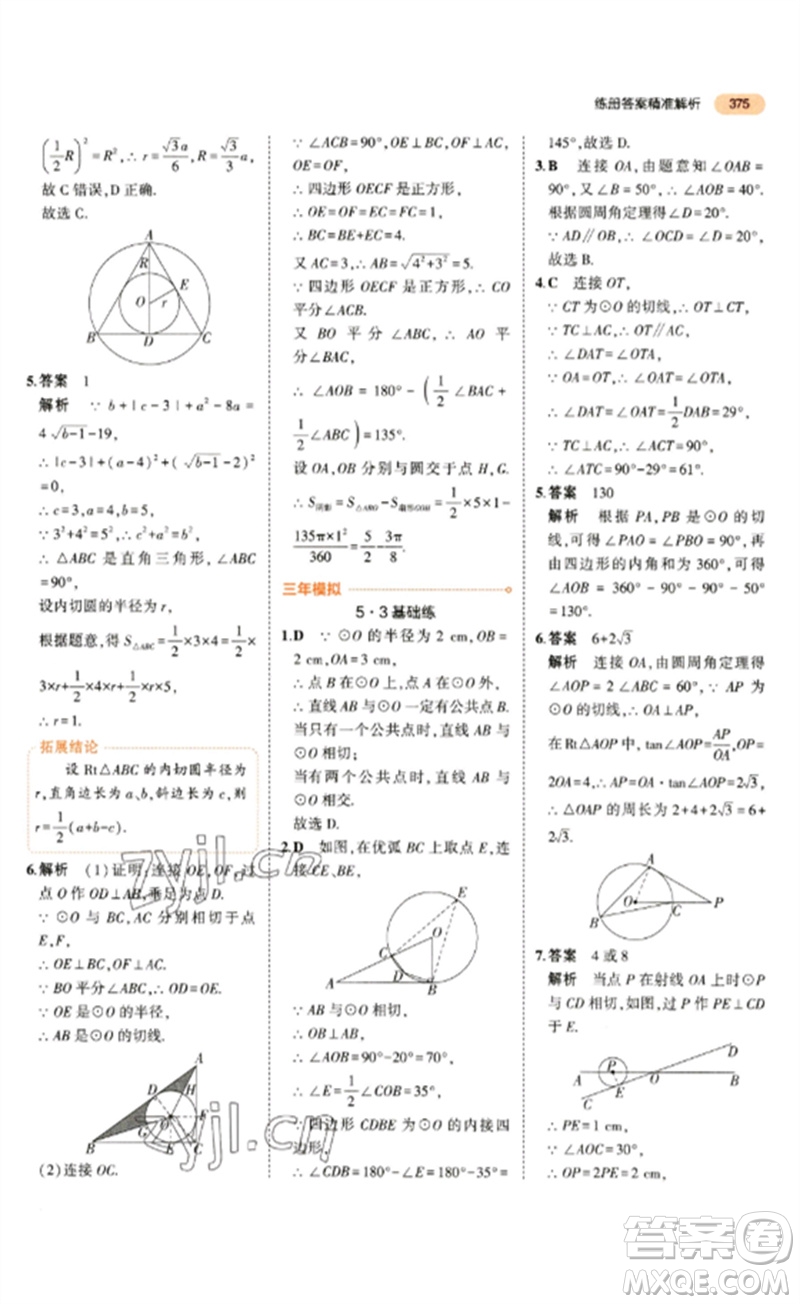 练册答案精准解析 375
(1/2 R)²=R²,∴ r=√3a/6,R=√3/3 a,
故 C 错误,D 正确.
故选 C.
A
R
E
O r
B D C
5.答案 1
解析 ∵ b+|c-3|+a²-8a=
4√(b-1)-19,
∴ |c-3|+(a-4)²+(√(b-1)-2)²
=0,
∴ c=3,a=4,b=5,
∵ 3²+4²=5²,∴ a²+c²=b²,
∴ △ABC 是直角三角形,∠ABC
=90°,
设内切圆的半径为 r,
根据题意,得 S△ABC=1/2×3×4=1/2×
3×r+1/2×4×r+1/2×5×r,
∴ r=1.
拓展结论
设 Rt△ABC 的内切圆半径为
r,直角边长为 a、b,斜边长为 c,则
r=1/2(a+b-c).
6.解析 (1)证明:连接 OE,OF,过
点 O 作 OD⊥AB,垂足为点 D.
∵ ⊙O 与 BC,AC 分别相切于点
E,F,
∴ OE⊥BC,OF⊥AC.
∵ BO 平分∠ABC,∴ OD=OE.
∵ OE 是⊙O 的半径,
∴ AB 是⊙O 的切线.
A
D H
O F
G
B E C
(2)连接 OC.
∵ ∠ACB=90°,OE⊥BC,OF⊥AC,
OE=OF,
∴ 四边形 OECF 是正方形,
∴ OE=OF=EC=FC=1,
∴ BC=BE+EC=4.
又 AC=3,∴ AB=√(4²+3²)=5.
∵ 四边形 OECF 是正方形,∴ CO
平分∠ACB.
又 BO 平分∠ABC,∴ AO 平
分∠BAC,
∴ ∠AOB=180°-(1/2∠BAC+
1/2∠ABC)=135°.
设 OA,OB 分别与圆交于点 H,G.
∴ S阴影=S△ABO-S扇形GOH=1/2×5×1-
135π×1²/360=5/2-3π/8.
三年模拟
5·3基础练
1.D ∵ ⊙O 的半径为 2 cm,OB=
2 cm,OA=3 cm,
∴ 点 B 在⊙O 上,点 A 在⊙O 外,
∴ 直线 AB 与⊙O 有公共点 B.
当只有一个公共点时,直线 AB 与
⊙O 相切;
当有两个公共点时,直线 AB 与
⊙O 相交.
故选 D.
2.D 如图,在优弧 BC 上取点 E,连
接 CE,BE,
E
O
C
D
A B
∵ AB 与⊙O 相切,
∴ OB⊥AB,
∴ ∠AOB=90°-20°=70°,
∴ ∠E=1/2∠COB=35°,
∵ 四边形 CDBE 为⊙O 的内接四
边形,
∴ ∠CDB=180°-∠E=180°-35°=
145°,故选 D.
3.B 连接 OA,由题意知∠OAB=
90°,又∠B=50°,∴ ∠AOB=40°.
根据圆周角定理得∠D=20°.
∵ AD∥OB,∴ ∠OCD=∠D=20°,
故选 B.
4.C 连接 OT,
∵ CT 为⊙O 的切线,∴ OT⊥CT,
∵ TC⊥AC,∴ OT∥AC,
∴ ∠DAT=∠OTA.
∵ OA=OT,∴ ∠OAT=∠OTA,
∴ ∠DAT=∠OAT=1/2 DAB=29°,
∵ TC⊥AC,∴ ∠ACT=90°,
∴ ∠ATC=90°-29°=61°.
5.答案 130
解析 根据 PA,PB 是⊙O 的切
线,可得∠PAO=∠PBO=90°,再
由四边形的内角和为 360°,可得
∠AOB=360°-90°-90°-50°
=130°.
6.答案 6+2√3
解析 连接 OA,由圆周角定理得
∠AOP=2∠ABC=60°,∵ AP 为
⊙O 的切线,∴ OA⊥AP,
在 Rt△AOP 中,tan∠AOP=AP/OA,OP=
2OA=4,∴ AP=OA·tan∠AOP=2√3,
∴ △OAP 的周长为 2+4+2√3=6+
2√3.
A
O
B C P
7.答案 4 或 8
解析 当点 P 在射线 OA 上时⊙P
与 CD 相切,如图,过 P 作 PE⊥CD
于 E.
P D
A O B
C E
∴ PE=1 cm,
∵ ∠AOC=30°,
∴ OP=2PE=2 cm,
zyjl.cn
zyjl.cn
答案圈
MXQE.COM